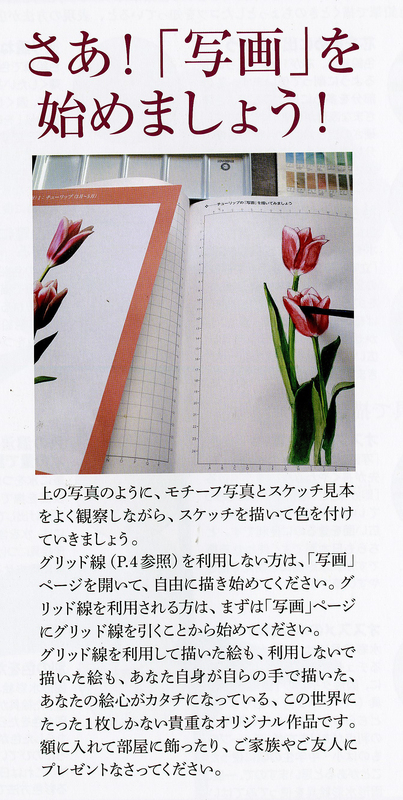 さあ!「写画」を
始めましょう!
チューリップの「写画」を描いてみましょう
上の写真のように、モチーフ写真とスケッチ見本
をよく観察しながら、スケッチを描いて色を付け
ていきましょう。
グリッド線（P.4参照）を利用しない方は、「写画」
ページを開いて、自由に描き始めてください。グ
リッド線を利用される方は、まずは「写画」ページ
にグリッド線を引くことから始めてください。
グリッド線を利用して描いた絵も、利用しないで
描いた絵も、あなた自身が自らの手で描いた、
あなたの絵心がカタチになっている、この世界に
たった1枚しかない貴重なオリジナル作品です。
額に入れて部屋に飾ったり、ご家族やご友人に
プレゼントなさってください。